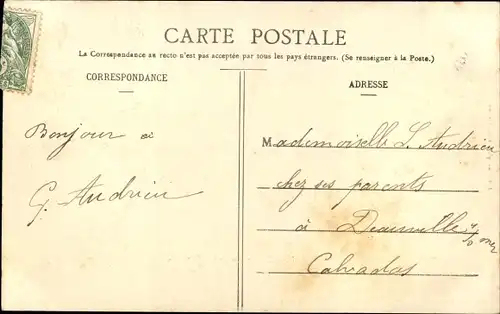 CARTE POSTALE
La Correspondance au recto n'est pas acceptée par tous les pays étrangers. (Se renseigner à la Poste.)
CORRESPONDANCE
ADRESSE
Bonjour à
G. Andrieu
Mademoiselle L. Andrieu
chez ses parents
à Deauville s/ mer
Calvados